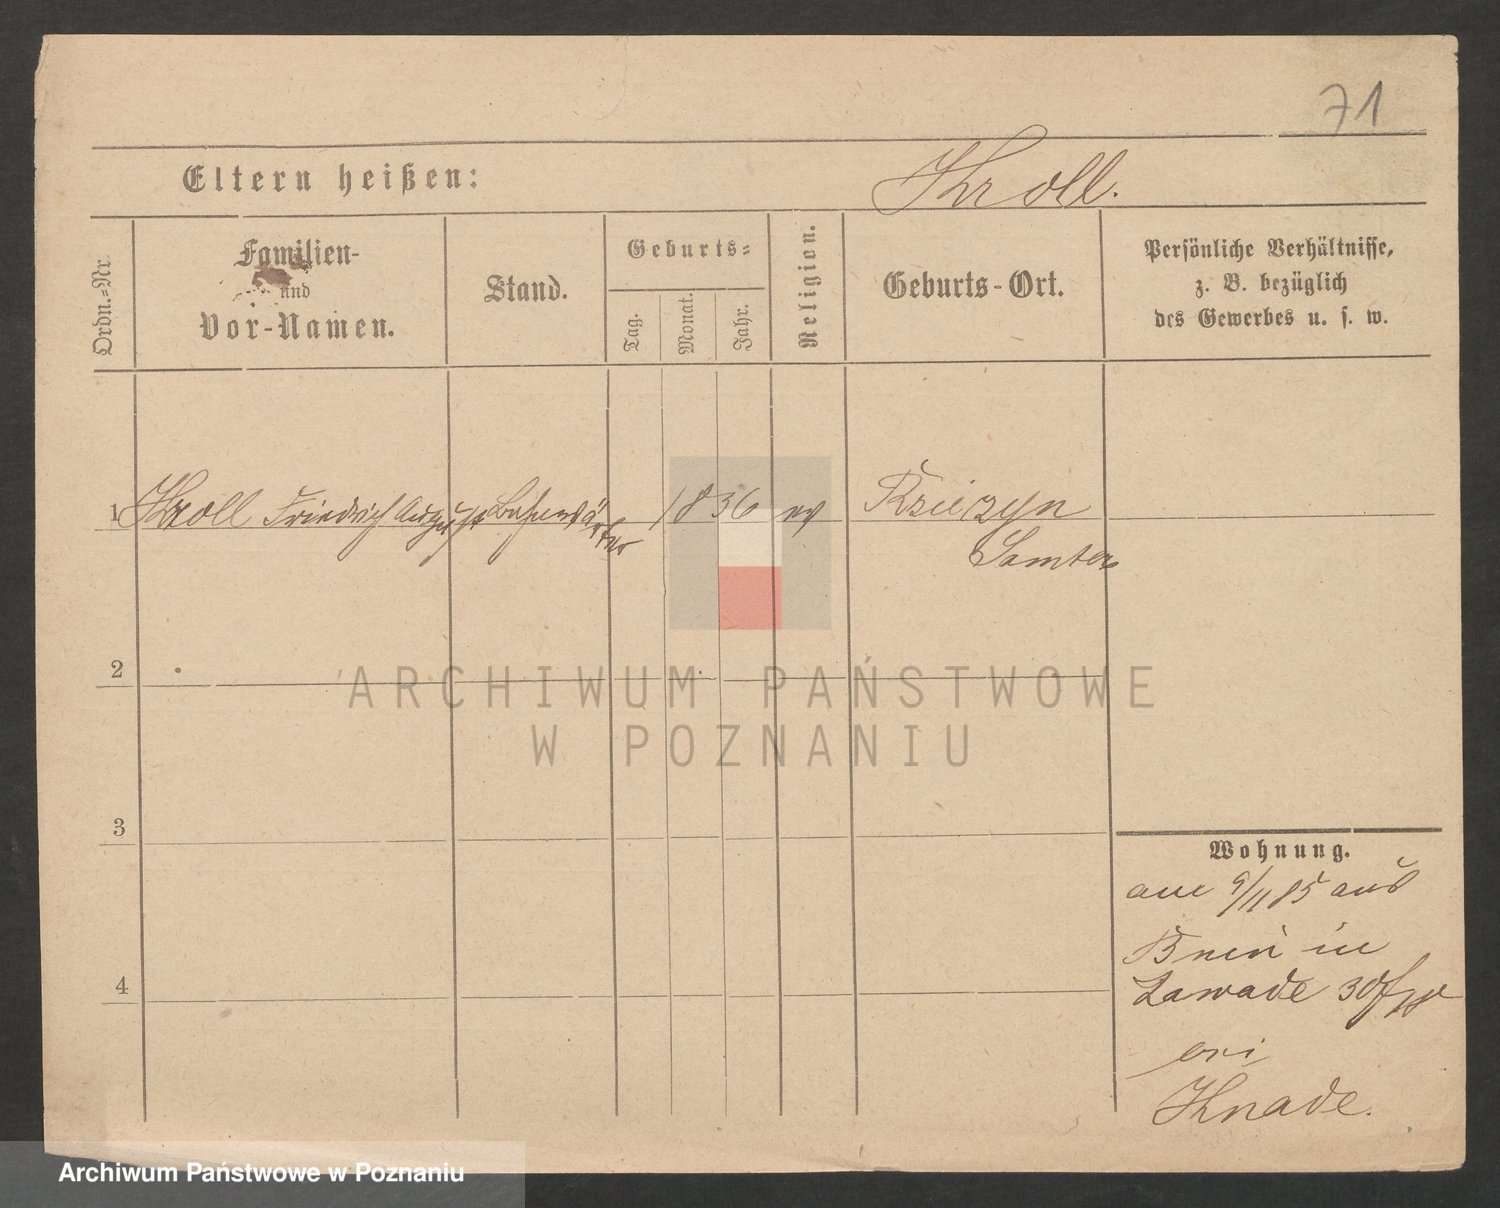 71
Eltern heißen: Kroll.
Ordn.-Nr.
Familien-
und
Vor-Namen.
Stand.
Geburts-
Tag.
Monat.
Jahr.
Religion.
Geburts-Ort.
Persönliche Verhältnisse,
z. B. bezüglich
des Gewerbes u. s. w.
1 Kroll Friedrich August Bahnwärter 1836 ev
Samter
2
3
4
Wohnung.
am 9/11 85 aus
Bnin in
Zawade 30
bei
Knade.
ARCHIWUM PAŃSTWOWE
W POZNANIU
Archiwum Państwowe w Poznaniu